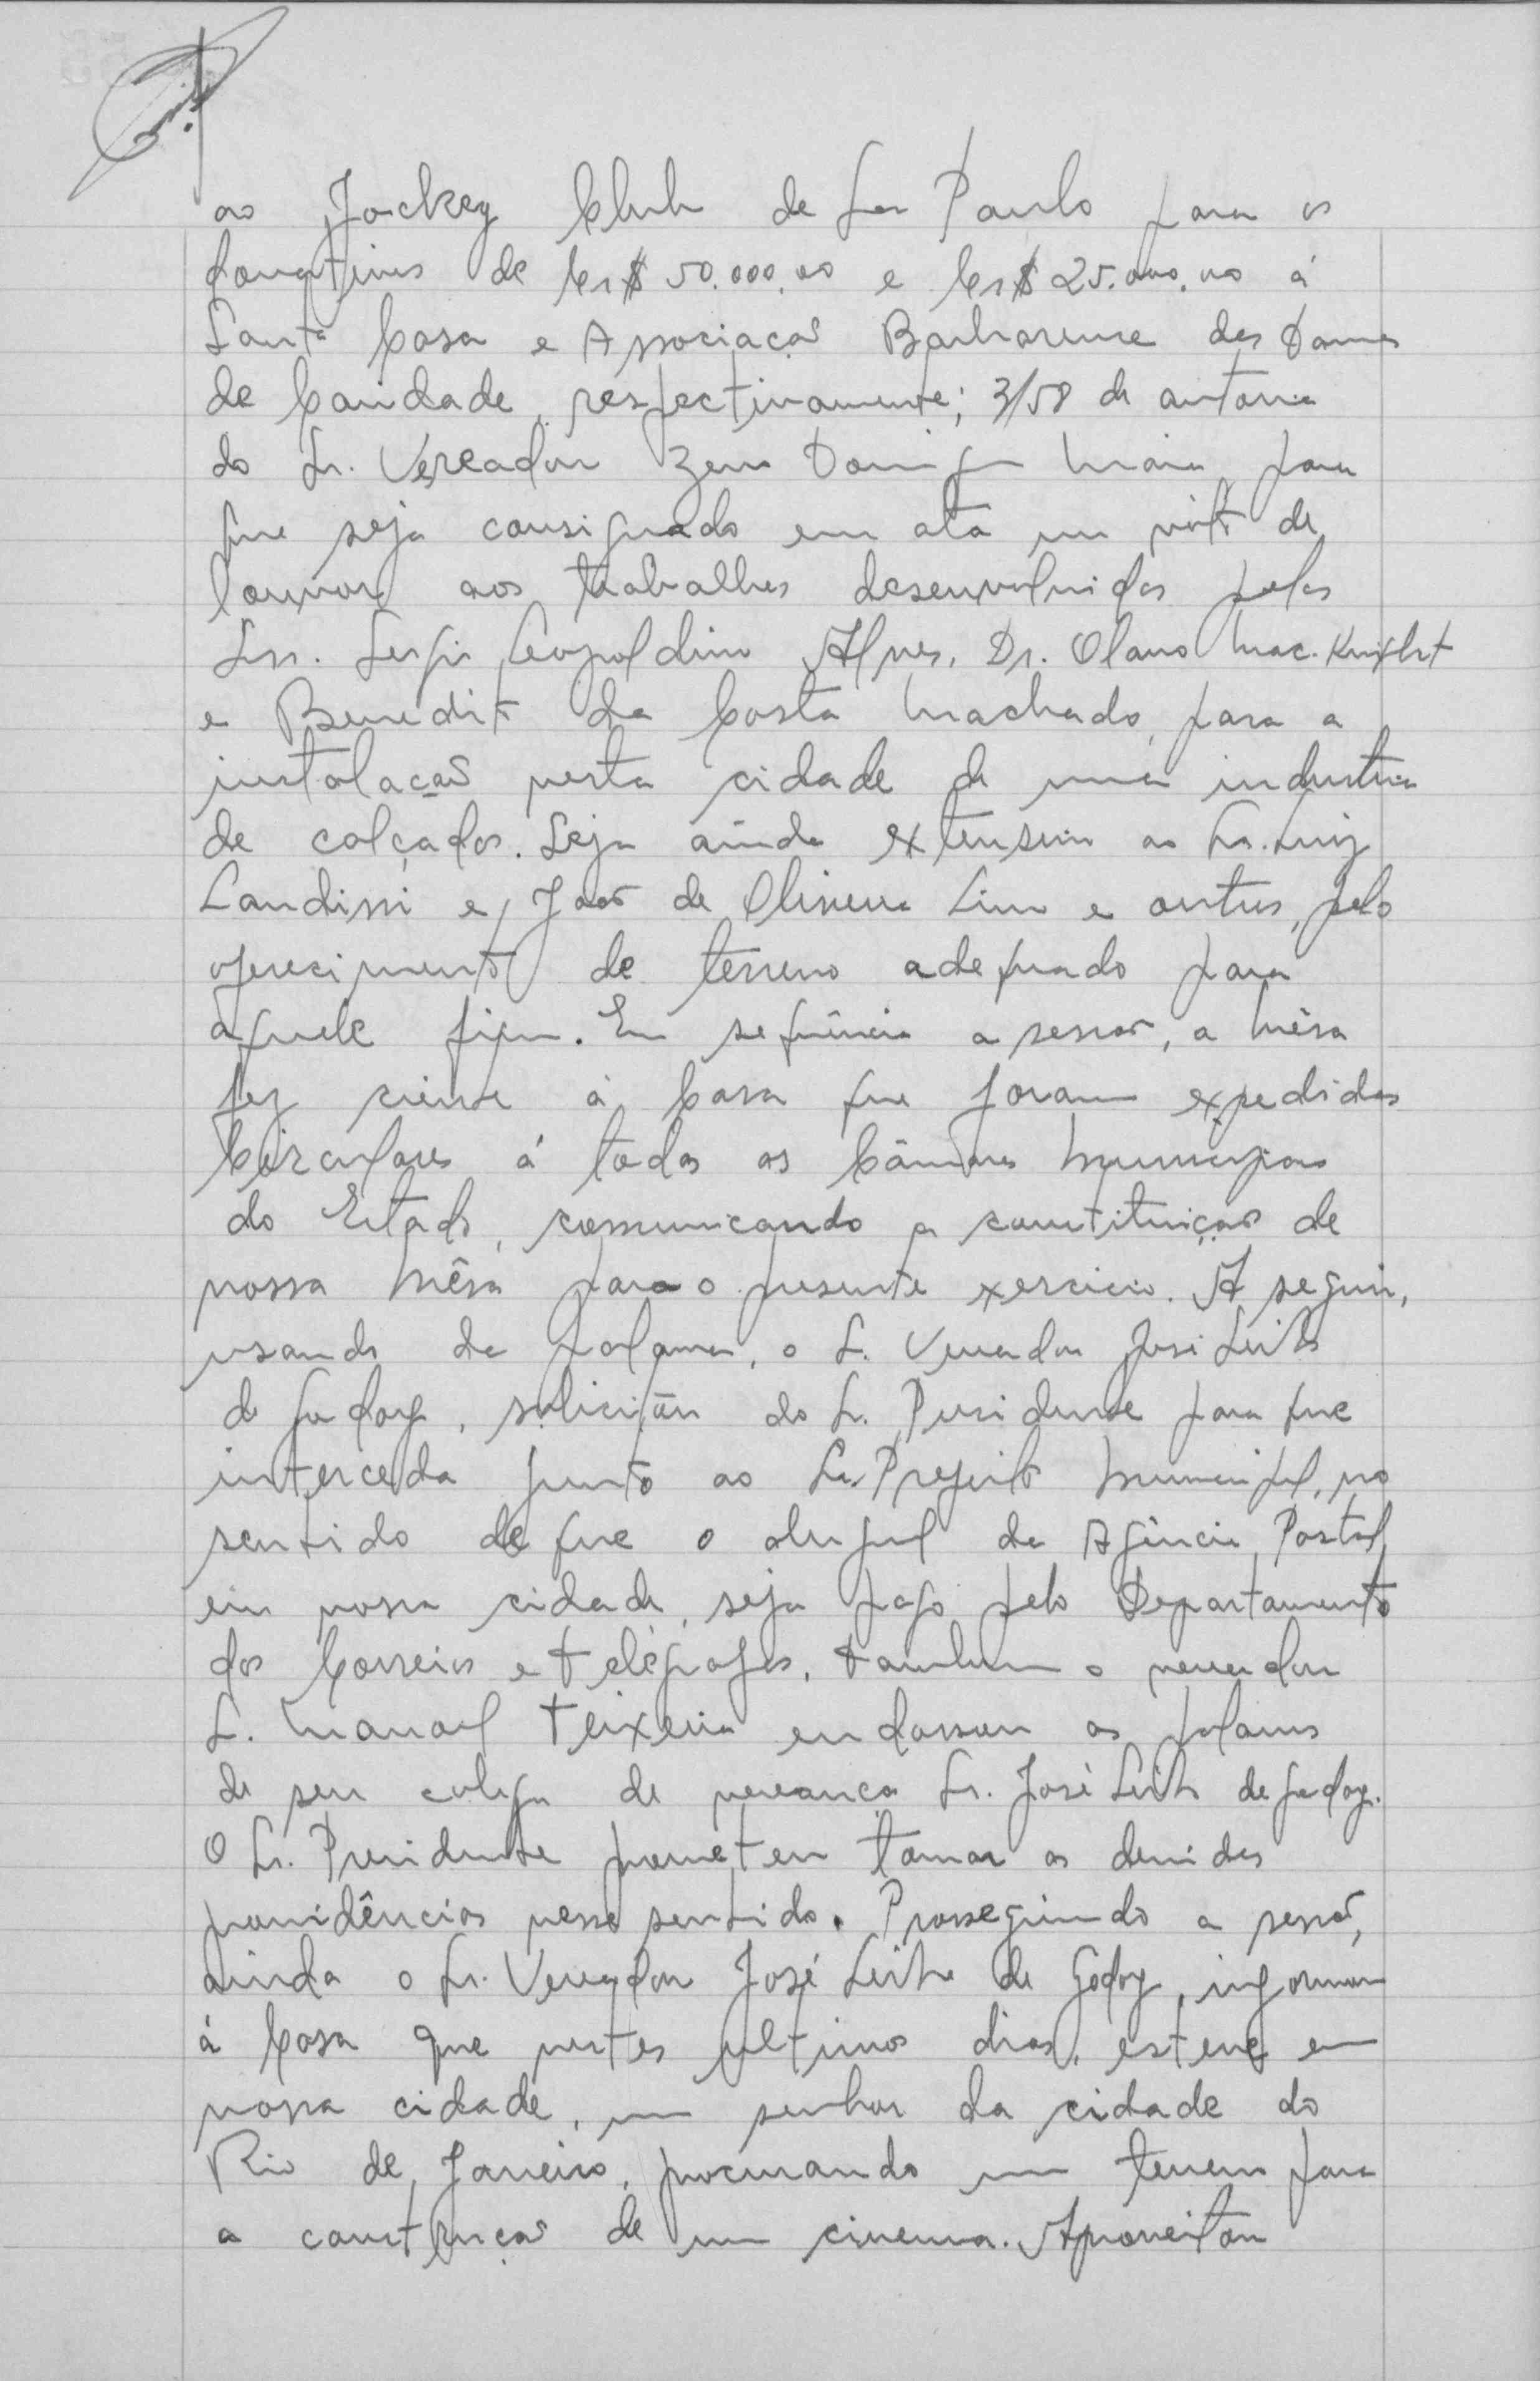 ao Jockey Club de São Paulo para os
donativos de Cr$ 50.000,00 e Cr$ 25.000,00 á
Santa Casa e Associação Barbarense das Damas
de Caridade, respectivamente; 3/58 de autoria
do Sr. Vereador Zeno Maia, para
que seja consignado em ata um voto de
louvor aos trabalhos desenvolvidos pelos
Srs. Sergio Leopoldino Alves, Dr. Olavo Mac. Knight
e Benedito da Costa Machado, para a
instalação nesta cidade de uma industria
de calçados. Seja ainda extensivo ao Sr. Luiz
Landissi e João de Oliveira Lino e outros, pelo
oferecimento de terreno adequado para
aquele fim. Em sequência a sessão, a Mêsa
fez ciente á Casa que foram expedidas
Circulares á todas as Câmaras Municipais
do Estado, comunicando a constituição de
nossa Mêsa para o presente exercicio. A seguir,
usando da palavra, o Sr. Vereador José Leite
de Godoy, solicitou do Sr. Presidente para que
interceda junto ao Sr. Prefeito Municipal, no
sentido de que o aluguel da Agência Postal
em nossa cidade, seja pago pelo Departamento
dos Correios e Telégrafos. Tambem o vereador
Sr. Manoel Teixeira endossou as palavras
de seu colega de vereança Sr. José Leite de Godoy.
O Sr. Presidente prometeu tomar as devidas
providências nesse sentido. Prosseguindo a sessão,
ainda o Sr. Vereador José Leite de Godoy, informou
á Casa que nestes ultimos dias, esteve em
nossa cidade, um senhor da cidade do
Rio de Janeiro, procurando um terreno para
a construção de um cinema. Aproveitou